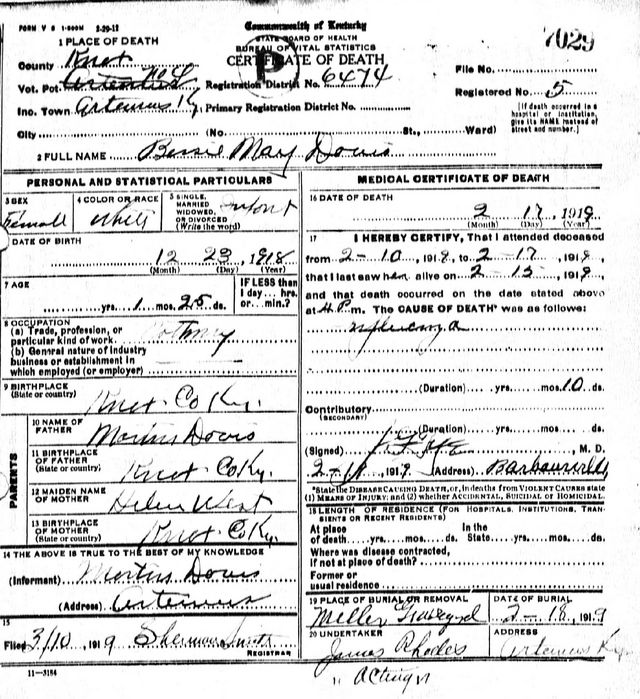 FORM V S 1-500M 2-29-12
Commonwealth of Kentucky
7029
STATE BOARD OF HEALTH
BUREAU OF VITAL STATISTICS
CERTIFICATE OF DEATH
1 PLACE OF DEATH
County Knox
File No.
Vot. Pct. Artemus No 4 Registration District No. 6474
Registered No. 5
Inc. Town Artemus Ky Primary Registration District No.
[If death occurred in a hospital or institution, give its NAME instead of street and number.]
City (No St., Ward)
2 FULL NAME Bessie Mary Dowis
PERSONAL AND STATISTICAL PARTICULARS
3 SEX Female
4 COLOR OR RACE White
5 SINGLE, MARRIED WIDOWED, OR DIVORCED (Write the word) Infant
6 DATE OF BIRTH
12 23, 1918
(Month) (Day) (Year)
7 AGE
yrs. 1 mos. 25 ds.
IF LESS than 1 day... hrs. or...min.?
8 OCCUPATION
(a) Trade, profession, or particular kind of work
(b) General nature of industry business or establishment in which employed (or employer)
9 BIRTHPLACE
(State or country) Knox Co Ky.
PARENTS
10 NAME OF FATHER Dowis
11 BIRTHPLACE OF FATHER
(State or country) Knox Co Ky.
12 MAIDEN NAME OF MOTHER Helen West
13 BIRTHPLACE OF MOTHER
(State or country) Knox Co Ky.
14 THE ABOVE IS TRUE TO THE BEST OF MY KNOWLEDGE
(Informant) Dowis
(Address) Artemus
15
Filed 3/10, 1919 Sherman Smith
REGISTRAR
11-3184
MEDICAL CERTIFICATE OF DEATH
16 DATE OF DEATH
2 17, 1919
(Month) (Day) (Year)
17 I HEREBY CERTIFY, That I attended deceased
from 2-10, 1919, to 2-17, 1919,
that I last saw her alive on 2-15, 1919,
and that death occurred on the date stated above
at 4 P.m. The CAUSE OF DEATH* was as follows:
Influenza
(Duration) yrs. mos. 10 ds.
Contributory
(SECONDARY)
(Duration) yrs. mos. ds.
(Signed) , M. D.
, 1919 (Address) Barbourville
*State the DISEASE CAUSING DEATH, or, in deaths from VIOLENT CAUSES state (1) MEANS OF INJURY; and (2) whether ACCIDENTAL, SUICIDAL or HOMICIDAL.
18 LENGTH OF RESIDENCE (FOR HOSPITALS, INSTITUTIONS, TRANSIENTS OR RECENT RESIDENTS)
At place of death yrs. mos. ds. In the State yrs. mos. ds.
Where was disease contracted, if not at place of death?
Former or usual residence
19 PLACE OF BURIAL OR REMOVAL Miller Graveyard
DATE OF BURIAL 2-18, 1919
20 UNDERTAKER James Rhodes
ADDRESS Artemus Ky
" Acting "